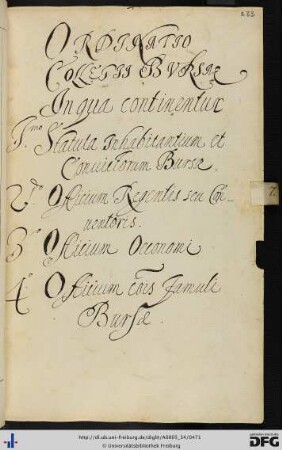 223
ORDINATIO
COLLEGII BVRSAE
In qua continentur
1.mo Statuta Inhabitantium et
Convictorum Bursæ.
2.do Officium Regentis seu Con-
uentoris.
3.o Officium Oeconomi
4.o Officium cõis Famuli
Bursæ
http://dl.ub.uni-freiburg.de/diglit/A0005_14/0473
© Universitätsbibliothek Freiburg
gefördert durch
DFG